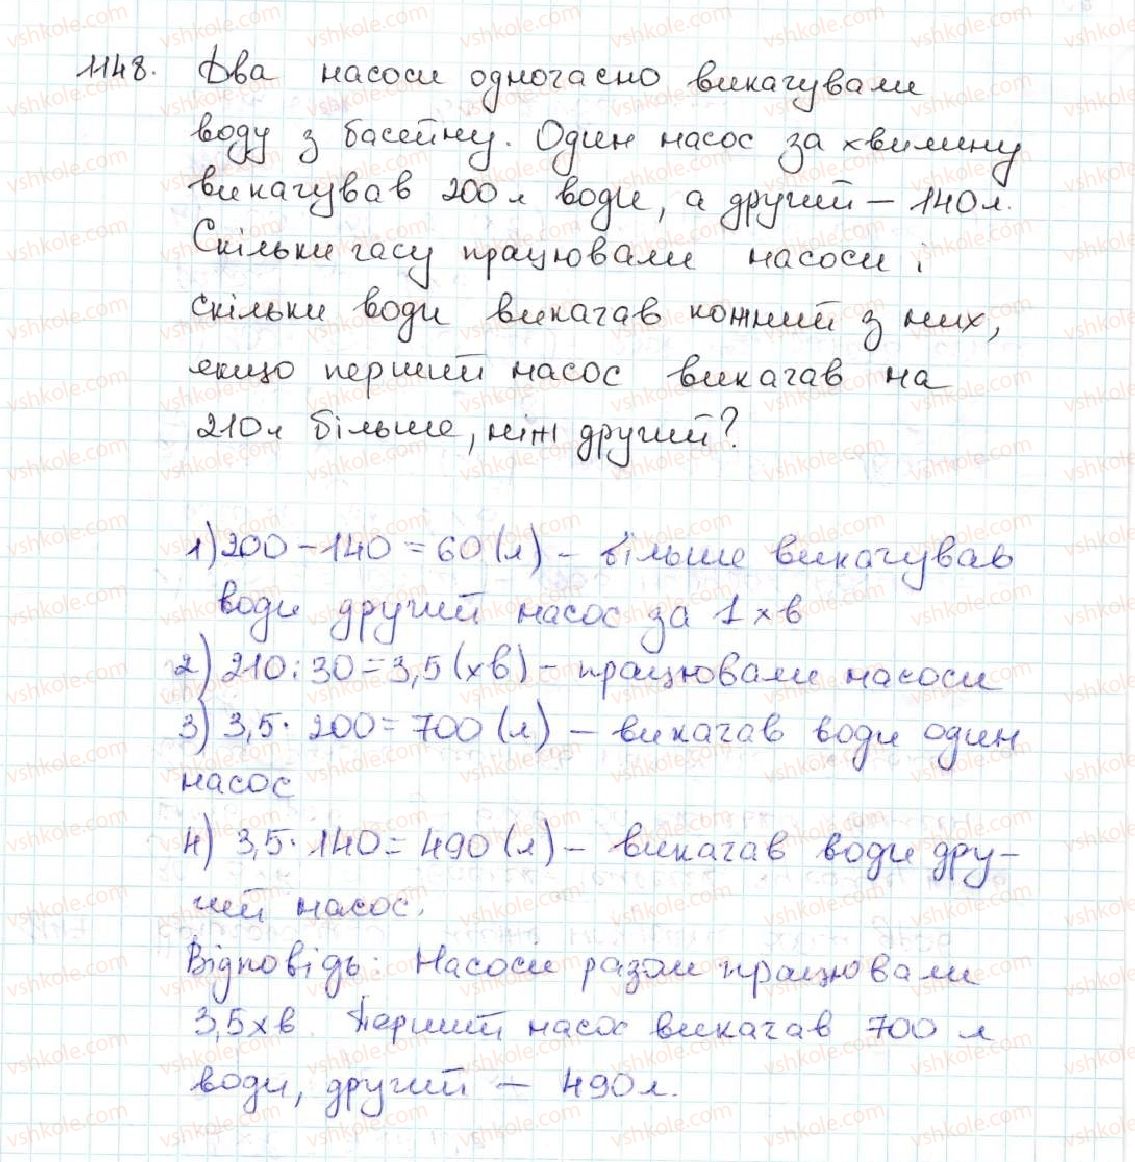 1148. Два насоси одночасно викачували
воду з басейну. Один насос за хвилину
викачував 200 л води, а другий – 140 л.
Скільки часу працювали насоси і
скільки води викачав кожний з них,
якщо перший насос викачав на
210 л більше, ніж другий?
1) 200 – 140 = 60 (л) – більше викачував
води другий насос за 1 хв
2) 210 : 30 = 3,5 (хв) – працювали насоси
3) 3,5 · 200 = 700 (л) – викачав води один
насос
4) 3,5 · 140 = 490 (л) – викачав води дру–
гий насос.
Відповідь: Насоси разом працювали
3,5 хв. Перший насос викачав 700 л
води, другий – 490 л.
vshkole.com